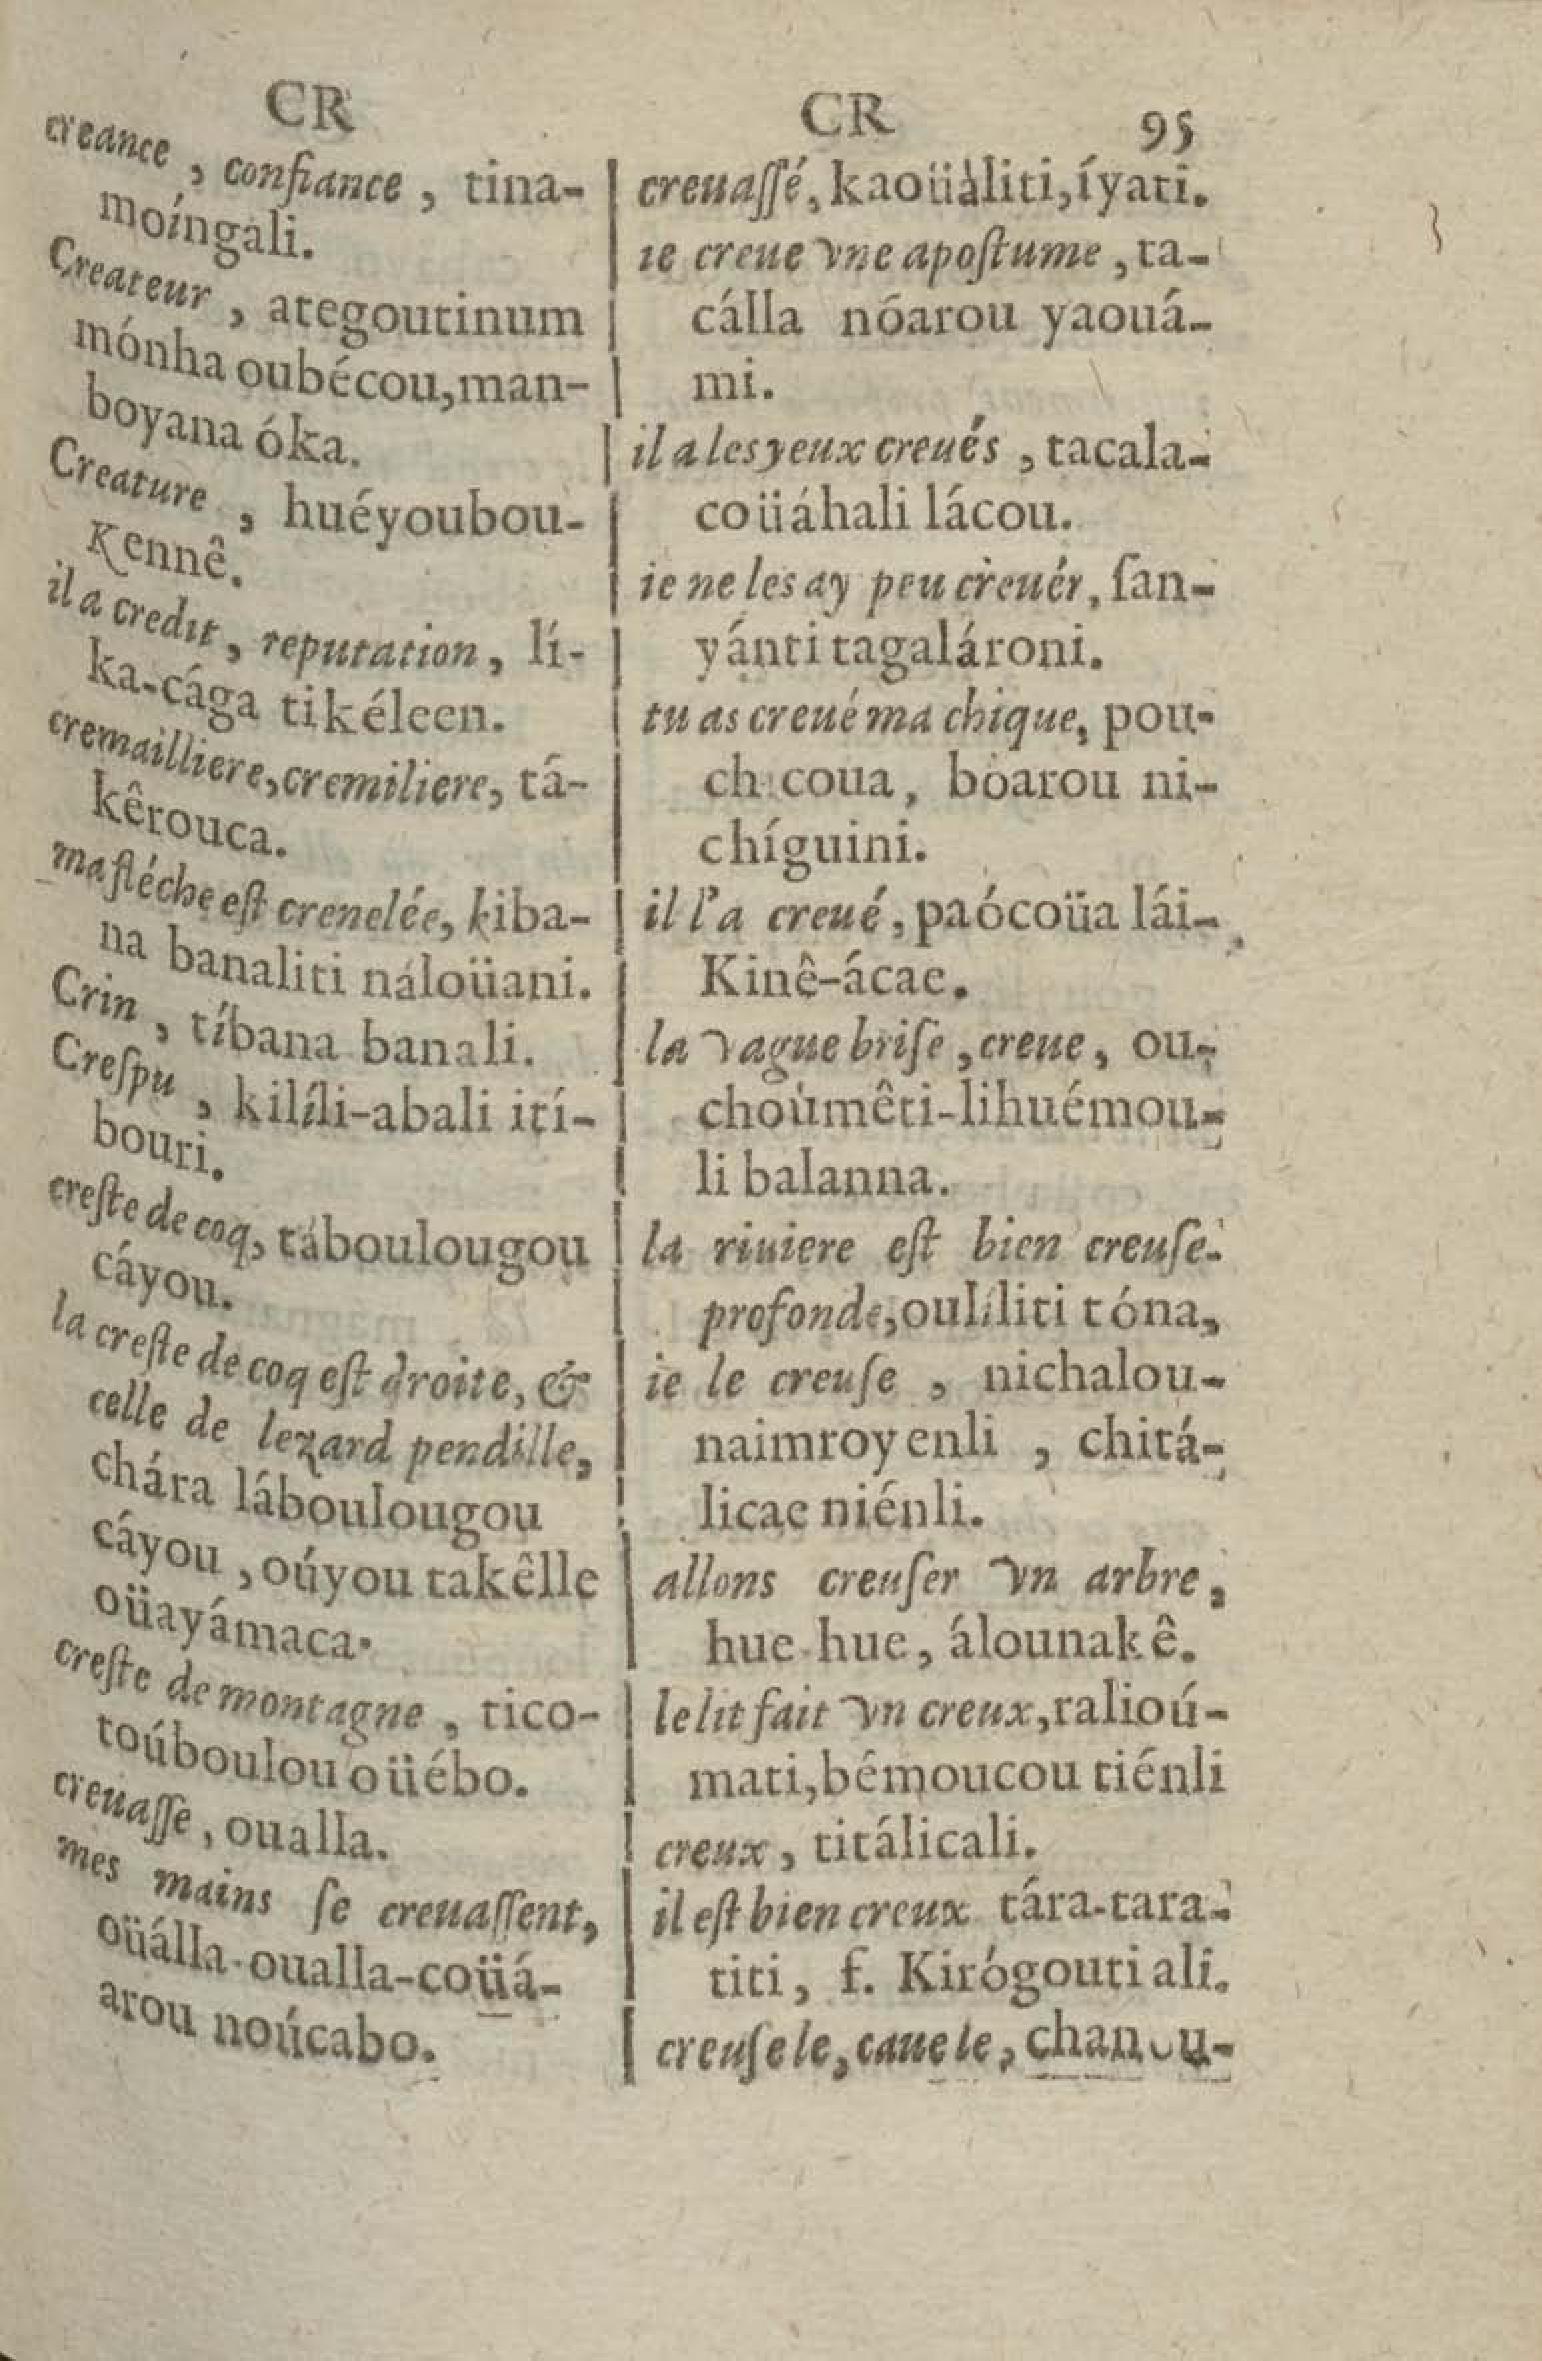 CR
creance, confiance, tina-
moíngali.
Createur, ategoutinum
mónha oubécou, man-
boyana óka.
Creature, huéyoubou-
Kennê.
il a credit, reputation, lí-
ka-cága tikéleen.
cremailliere, cremiliere, tá-
kêrouca.
ma fléche est crenelée, kiba-
na banaliti náloüani.
Crin, tíbana banali.
Creſpu, kilíli-abali ití-
bouri.
creſte de coq, táboulougou
cáyou.
la creſte de coq eſt droite, &
celle de lezard pendille,
chára láboulougou
cáyou, oúyou takêlle
oüayámaca.
creſte de montagne, tico-
toúboulou oüébo.
creuaſſe, oualla.
mes mains ſe creuaſſent,
oüálla-oualla-coüá-
arou noúcabo.
CR 95
creuaſſé, kaoüàliti, íyati.
ie creue vne apoſtume, ta-
cálla nóarou yaouá-
mi.
il a les yeux creués, tacala-
coüáhali lácou.
ie ne les ay peu creuér, ſan-
yánti tagalároni.
tu as creué ma chique, pou-
chicoua, bóarou ni-
chíguini.
il l'a creué, paócoüa lái-
Kinê-ácae.
la vague briſe, creue, ou-
choùmêti-lihuémou-
li balanna.
la riuiere eſt bien creuſe-
profonde, oulíliti tóna,
ie le creuſe, nichalou-
naimroyenli, chitá-
licae niénli.
allons creuſer vn arbre,
hue hue, álounakê.
le lit fait vn creux, ralioú-
mati, bémoucou tiénli
creux, titálicali.
il eſt bien creux tára-tara-
titi, f. Kirógouti ali.
creuſe le, caue le, chanou-